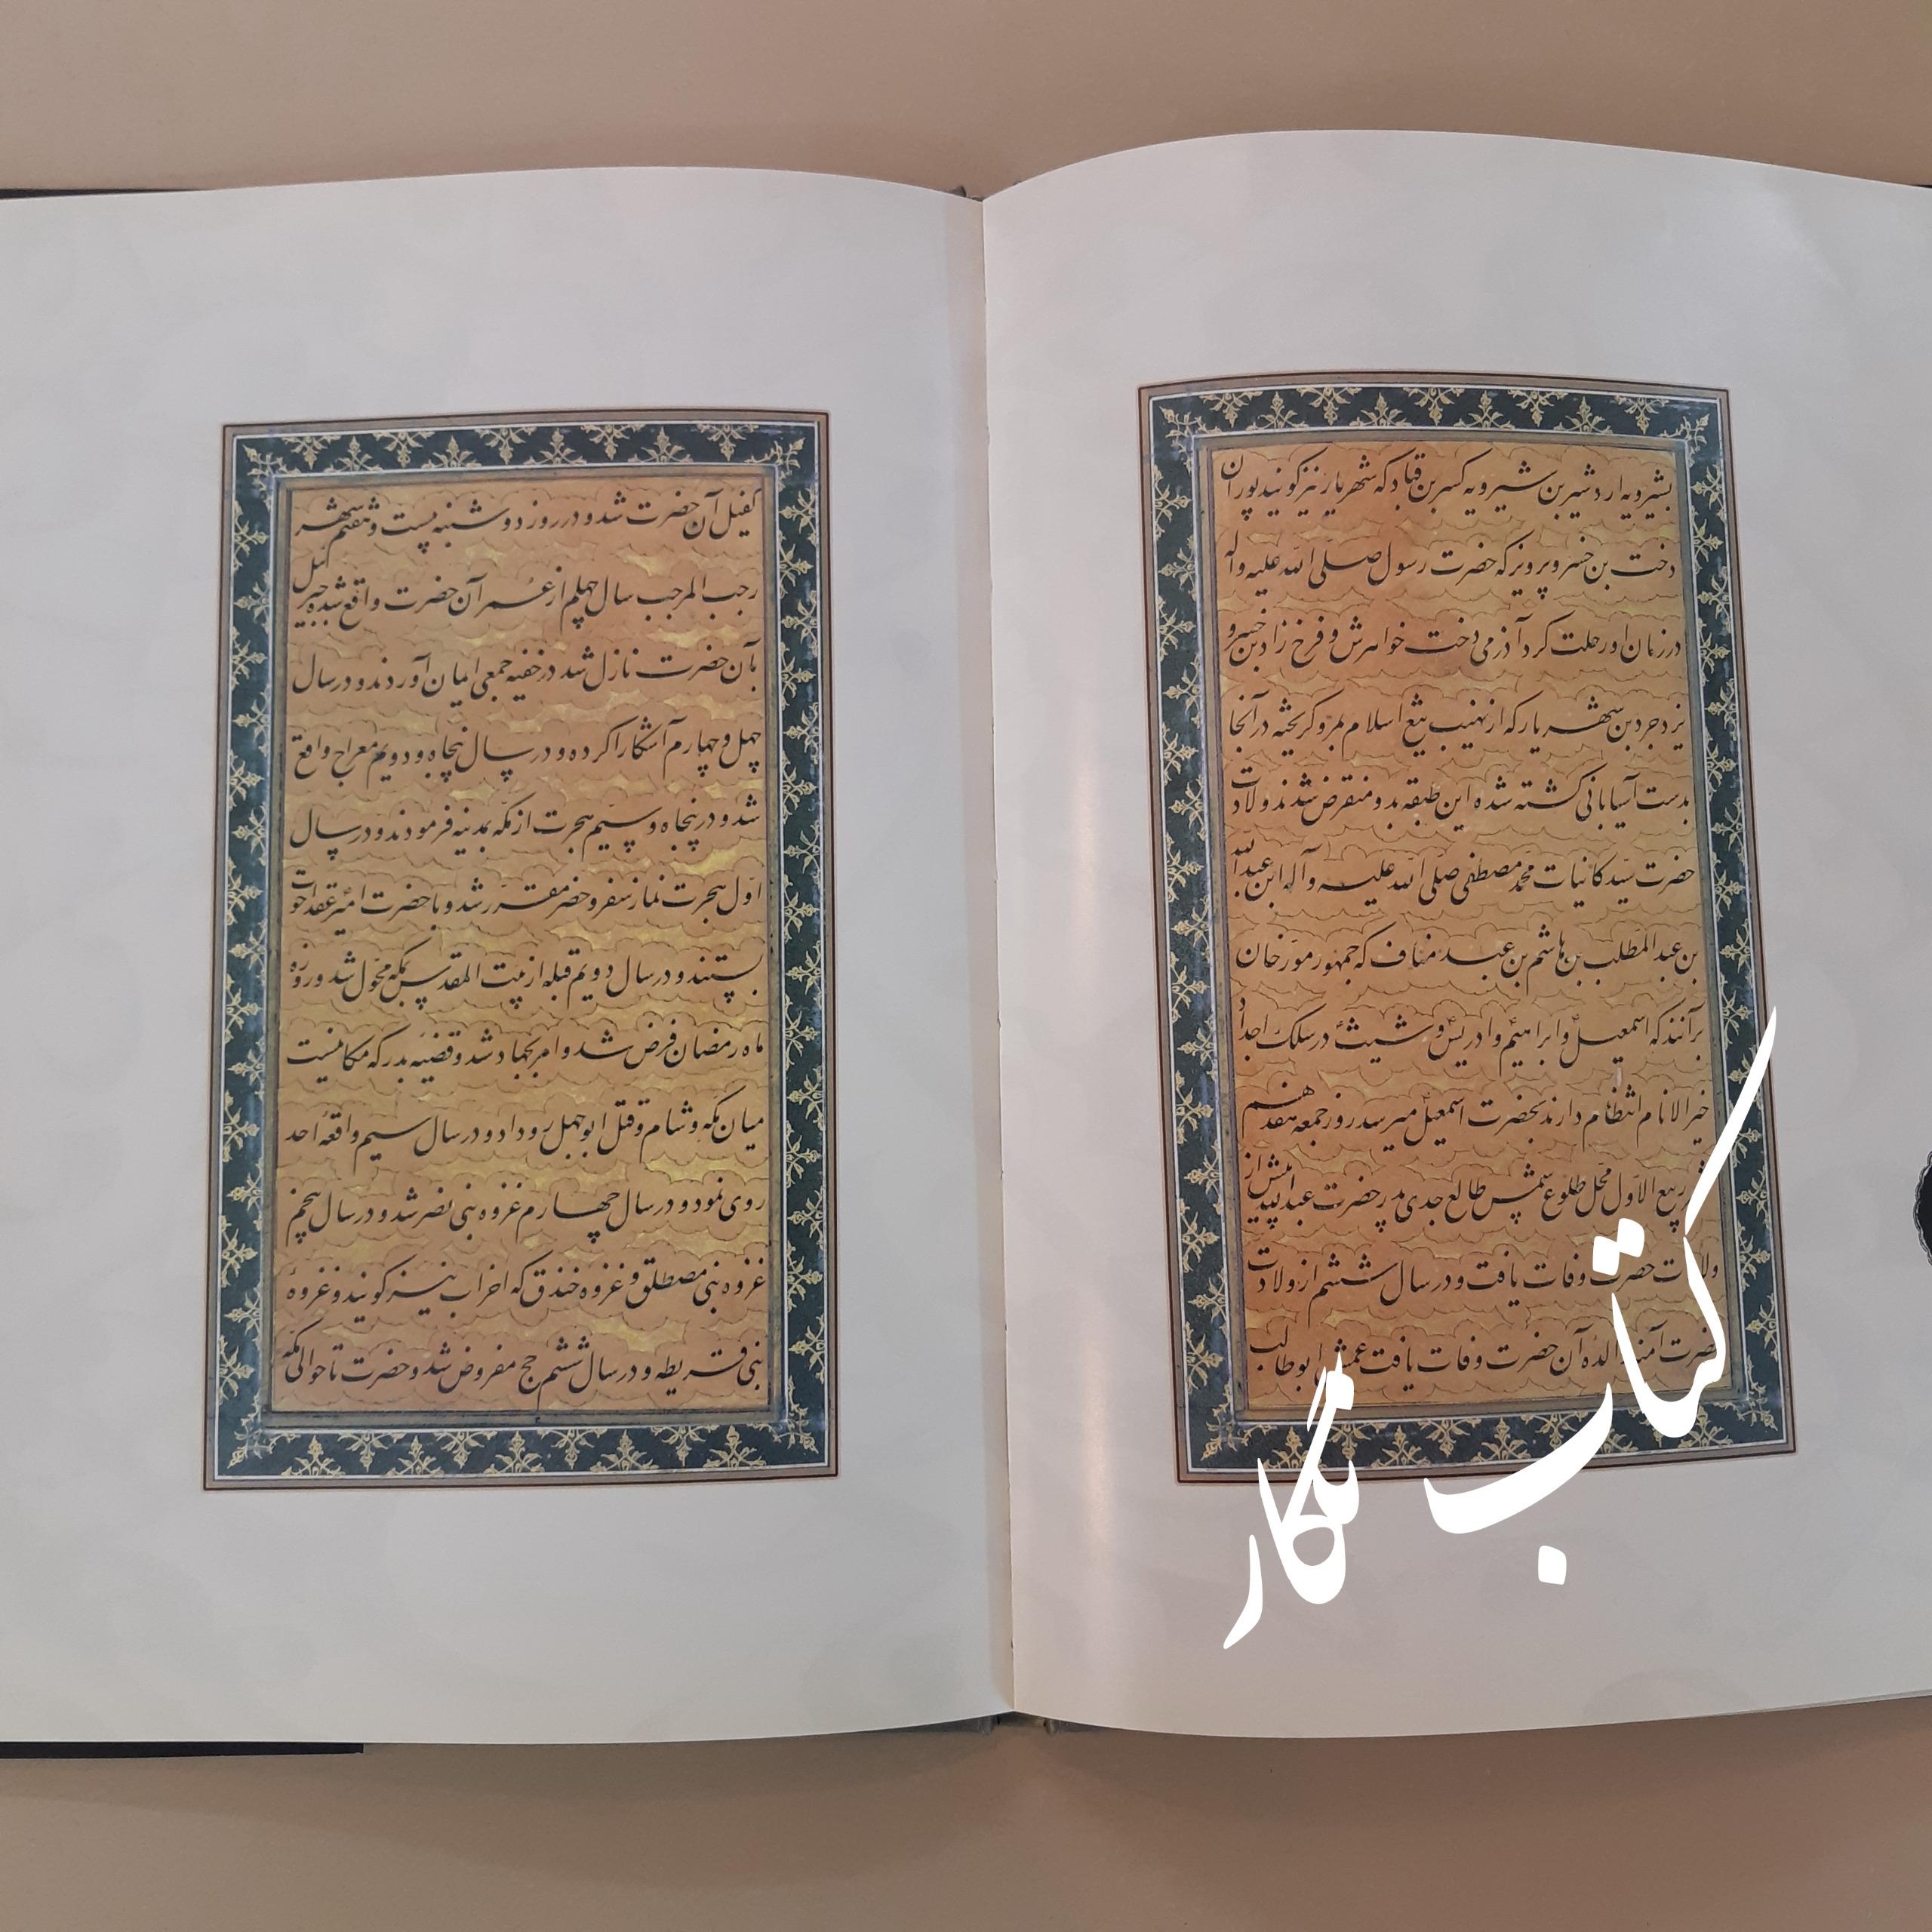 بشیرویه اردشیر بن شیرویه کسر بن قباد که شهریار نیز گویند پوران
دخت بن خسرو پرویز که حضرت رسول صلی الله علیه وآله
در زمان او رحلت کرد آذرمی دخت خواهرش و فرخ زاد بن خسرو
یزدجرد بن شهریار که از نهیب تیغ اسلام بمرو گریخته در آنجا
بدست آسیابانی کشته شده این طبقه بدو منقرض شدند ولادت
حضرت سید کاینات محمد مصطفی صلی الله علیه وآله ابن عبدالله
بن عبد المطلب بن هاشم بن عبد مناف که جمهور مورخان
برآنند که اسمعیل و ابراهیم و ادریس و شیث در سلک اجداد
خیر الانام انتظام دارند بحضرت اسمعیل میرسد روز جمعه هفدهم
ربیع الاول محل طلوع شمس طالع جدی پدر حضرت عبدالله پیش از
ولادت حضرت وفات یافت و در سال ششم از ولادت
حضرت آمنه والده آن حضرت وفات یافت عمش ابوطالب
کفیل آن حضرت شد و در روز دوشنبه بیست و هفتم شهر
رجب المرجب سال چهلم از عمر آن حضرت واقع شده جبرئیل
بآن حضرت نازل شد در خفیه جمعی ایمان آوردند و در سال
چهل و چهارم آشکارا کرده و در سال پنجاه و دویم معراج واقع
شد و در پنجاه و سیم هجرت از مکه بمدینه فرمودند و در سال
اول هجرت نماز سفر و حضر مقرر شد و با حضرت امیر عقد اخوت
بستند و در سال دویم قبله از بیت المقدس بمکه محول شد و روزه
ماه رمضان فرض شد و امر بجهاد شد و قضیه بدر که مکانیست
میان مکه و شام و قتل ابوجهل رو داد و در سال سیم واقعه احد
روی نمود و در سال چهارم غزوه بنی نضر شد و در سال پنجم
غزوه بنی مصطلق و غزوه خندق که احزاب نیز گویند و غزوه
بنی قریظه و در سال ششم حج مفروض شد و حضرت تا حوالی مکه
کتاب نگار